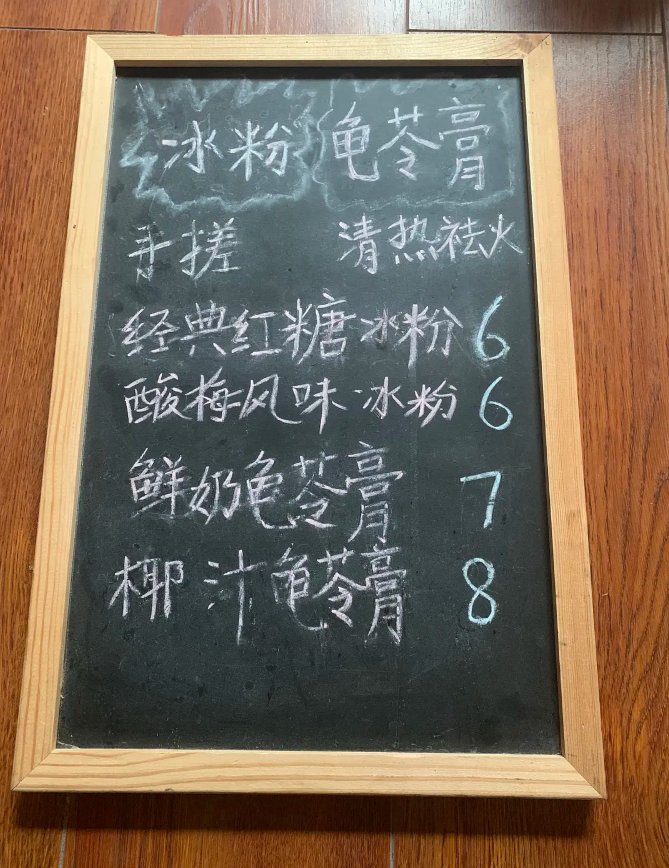 冰粉 龟苓膏
手搓 清热祛火
经典红糖冰粉 6
酸梅风味冰粉 6
鲜奶龟苓膏 7
椰汁龟苓膏 8